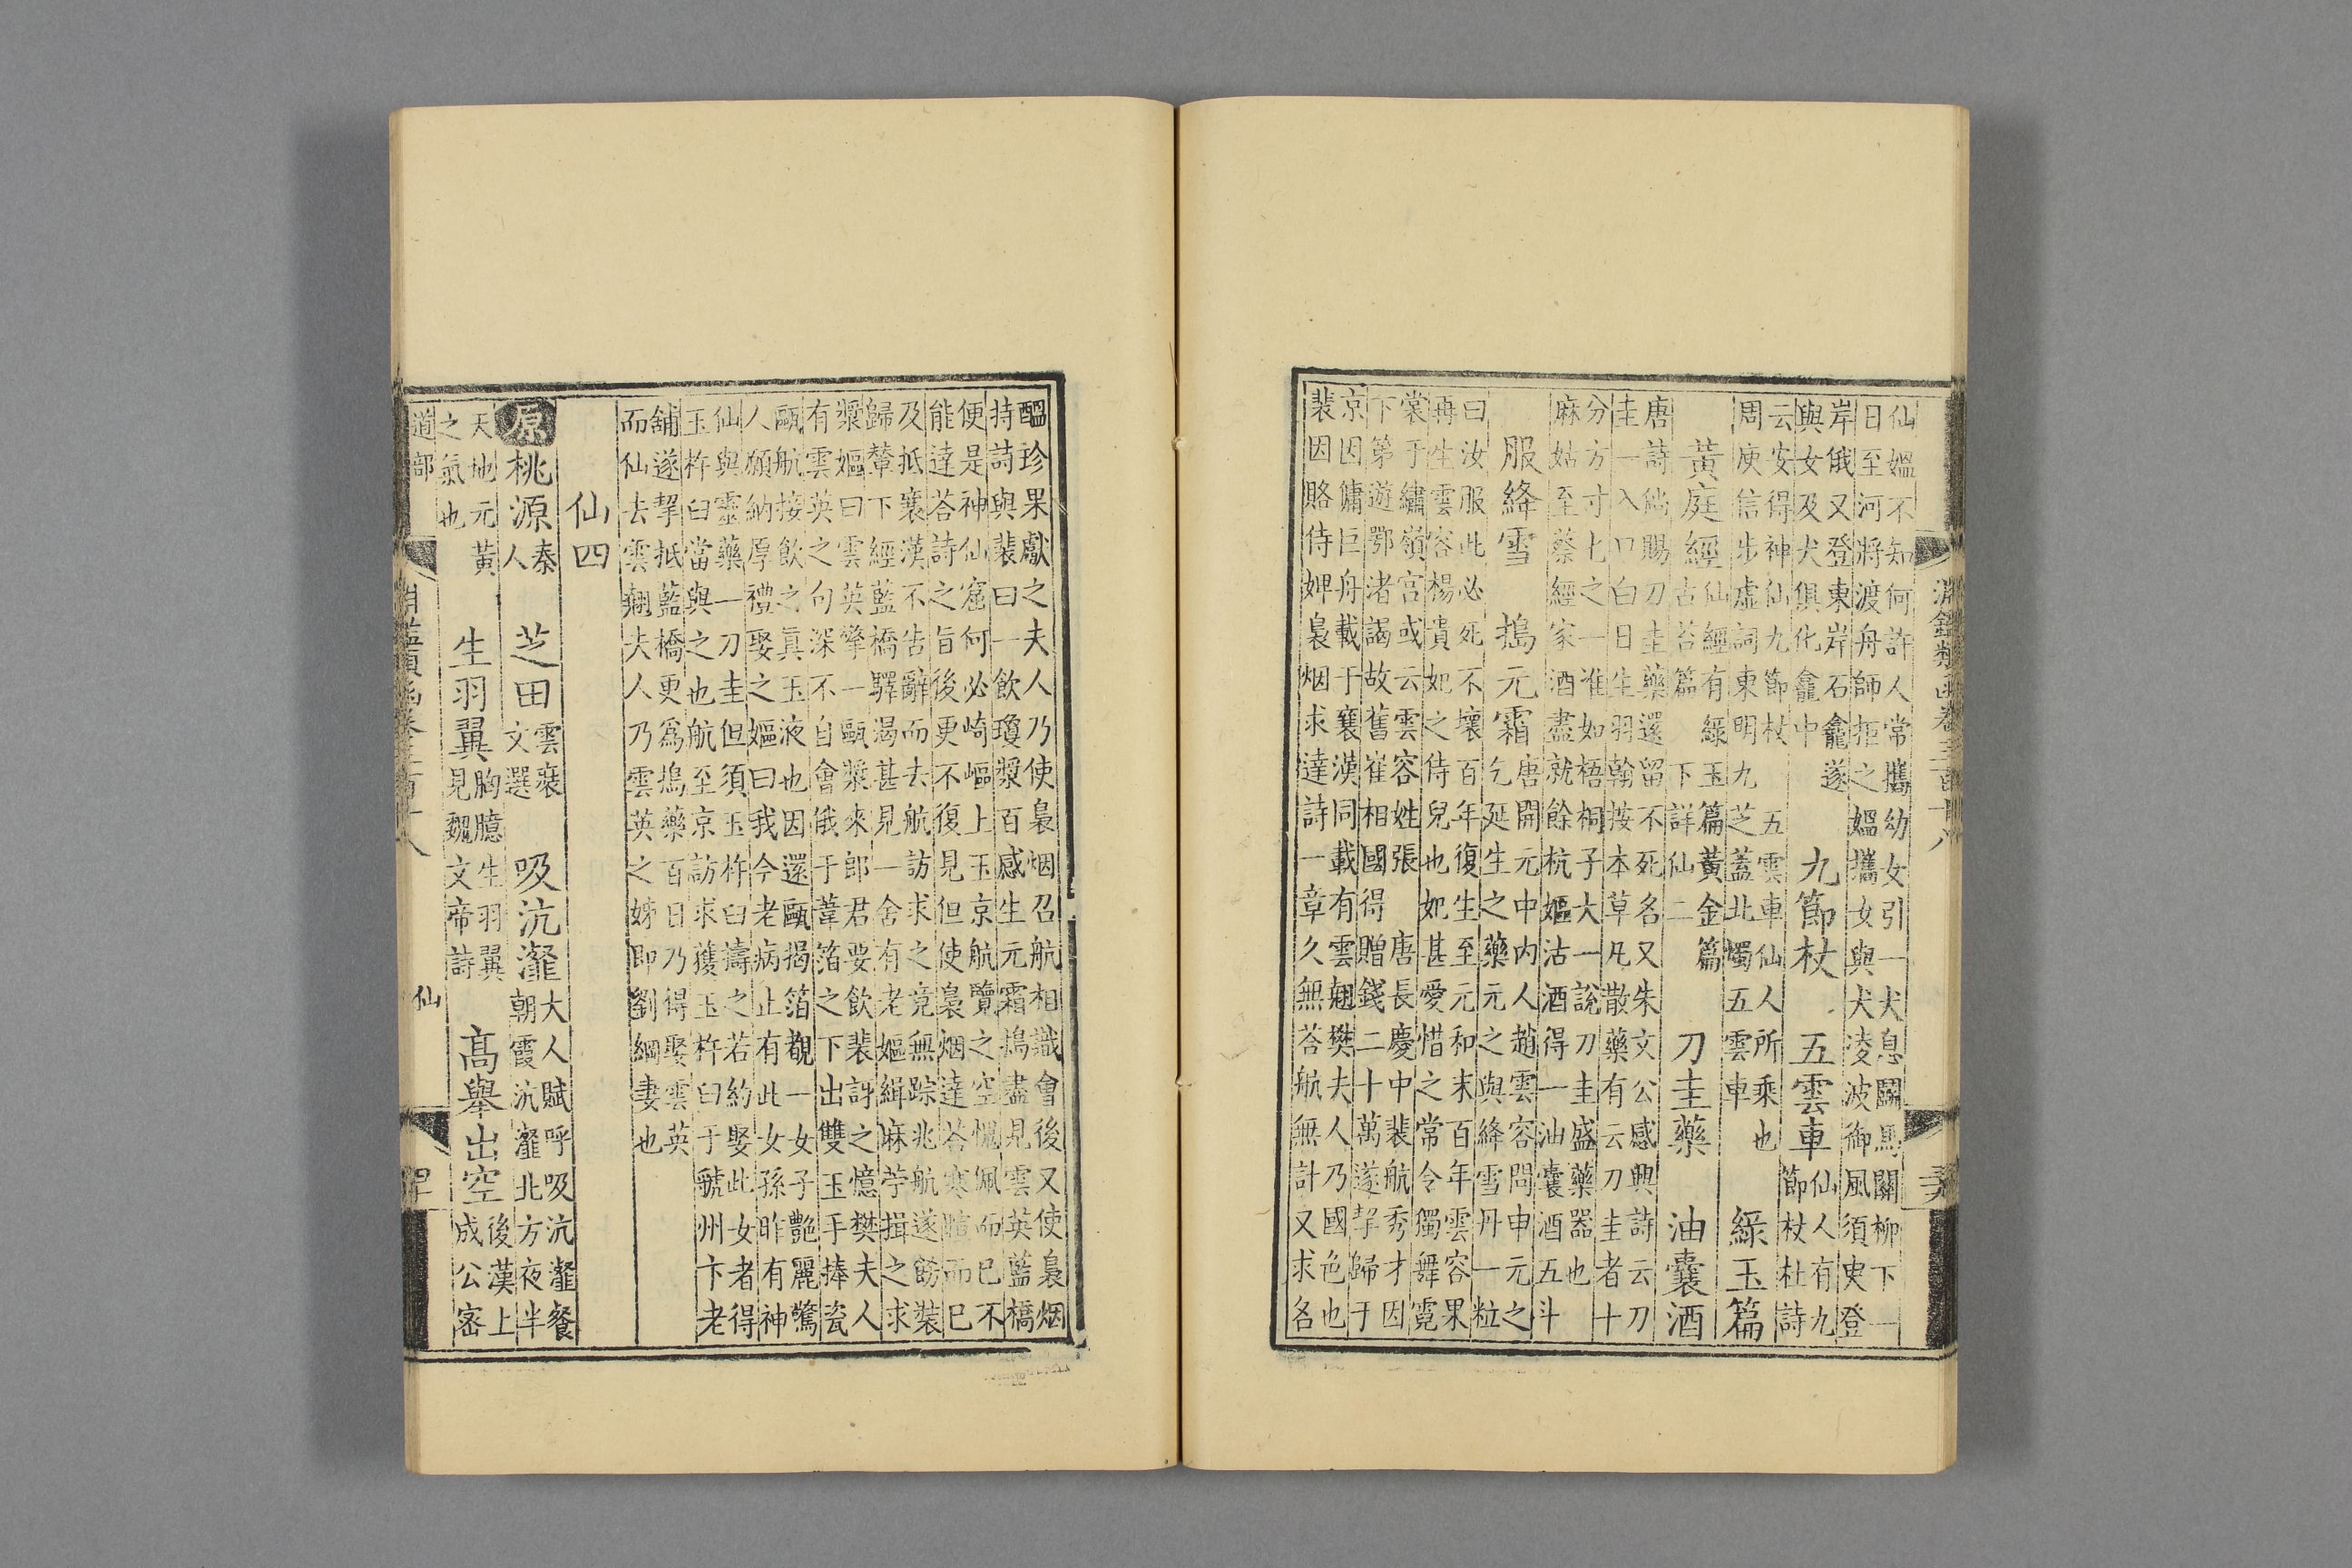 淵鑑類函卷三百十八
仙媼不知何許人常攜幼女引一犬息闗馬闗柳下一
日至河將渡舟師拒之媼攜女與犬凌波御風須臾登
岸俄又登東岸石龕遂
與女及犬俱化龕中
九節杖 五雲車
仙人有九
節杖杜詩
云安得神仙九節杖 五雲車仙人所乘也
周庾信步虛詞東明九芝蓋北燭五雲車
綠玉篇
黃庭經
仙經有綠玉篇黃金篇
古苔篇下詳仙二
刀圭藥 油囊酒
唐詩仙賜刀圭藥還留不死名又朱文公感興詩云刀
圭一入口白日生羽翰按本草凡散藥有云刀圭者十
分方寸匕之一准如梧桐子大一說刀圭盛藥器也
麻姑至蔡經家酒盡就餘杭嫗沽酒得一油囊酒五斗
服絳雪 搗元霜
唐開元中内人趙雲容問申元之
乞延生之藥元之與絳雪丹一粒
曰汝服此必死不壞百年復生至元和末百年雲容果
再生雲容楊貴妃之侍兒也妃甚愛惜之常令獨舞霓
裳于繡嶺宮或云雲容姓張 唐長慶中裴航秀才因
下第遊鄂渚謁故舊崔相國得贈錢二十萬遂挈歸于
京因傭巨舟載于襄漢同載有雲翹樊夫人乃國色也
裴因賂侍婢裊烟求達詩一章久無荅航無計又求名
醞珍果獻之夫人乃使裊烟召航相識會後又使裊烟
持詩與裴曰一飲瓊漿百感生元霜搗盡見雲英藍橋
便是神仙窟何必崎嶇上玉京航覽之空愧佩而已不
能達荅詩之旨後更不復見但使裊烟達荅寒暄而已
及抵襄漢不告辭而去航訪求之竟無踪兆航遂飾裝
歸輦下經藍橋驛渴甚見一舍有老嫗緝麻苧揖之求
漿嫗曰雲英擎一甌漿來郎君要飲裴訝之憶樊夫人
有雲英之句深不自會俄于葦箔之下出雙玉手捧瓷
甌航接飲之真玉液也因還甌揭箔覩一女子艷麗驚
人願納厚禮娶之嫗曰我今老病止有此女孫昨有神
仙與靈藥一刀圭但須玉杵臼擣之若約娶此女者得
玉杵臼當與之也航至京訪求獲玉杵臼于虢州卞老
舖遂挈抵藍橋更爲搗藥百日乃得娶雲英
而仙去雲翹夫人乃雲英之姊即劉綱妻也
仙四
原桃源
秦
人
芝田
雲
文選
吸沆瀣
大人賦呼吸沆瀣餐
朝霞沆瀣北方夜半
天地元黃
之氣也
生羽翼
胸臆生羽翼
見魏文帝詩
高舉出空
後漢上
成公宻
道部 仙